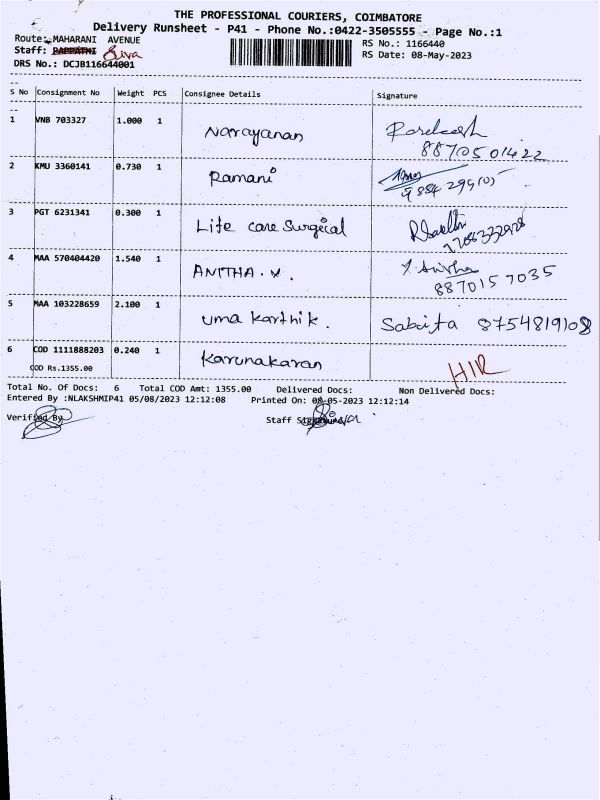 THE PROFESSIONAL COURIERS, COIMBATORE
Delivery Runsheet - P41 - Phone No.:0422-3505555 - Page No.:1
Route: MAHARANI AVENUE
RS No.: 1166440
Staff: PAPPATHI Siva
RS Date: 08-May-2023
DRS No.: DCJB116644001
S No Consignment No Weight PCS Consignee Details Signature
1 VNB 703327 1.000 1 Narayanan
8870501422
2 KMU 3360141 0.730 1 Ramani
3 PGT 6231341 0.300 1 Life care Surgical
4 MAA 570404420 1.540 1 ANITHA.
8870157035
5 MAA 103228659 2.100 1 uma karthik. Sabita 8754819108
6 COD 1111888203 0.240 1 Karunakaran
COD Rs.1355.00
Total No. Of Docs: 6 Total COD Amt: 1355.00 Delivered Docs: Non Delivered Docs:
Entered By :NLAKSHMIP41 05/08/2023 12:12:08 Printed On: 08-05-2023 12:12:14
Verified By
Staff Signature